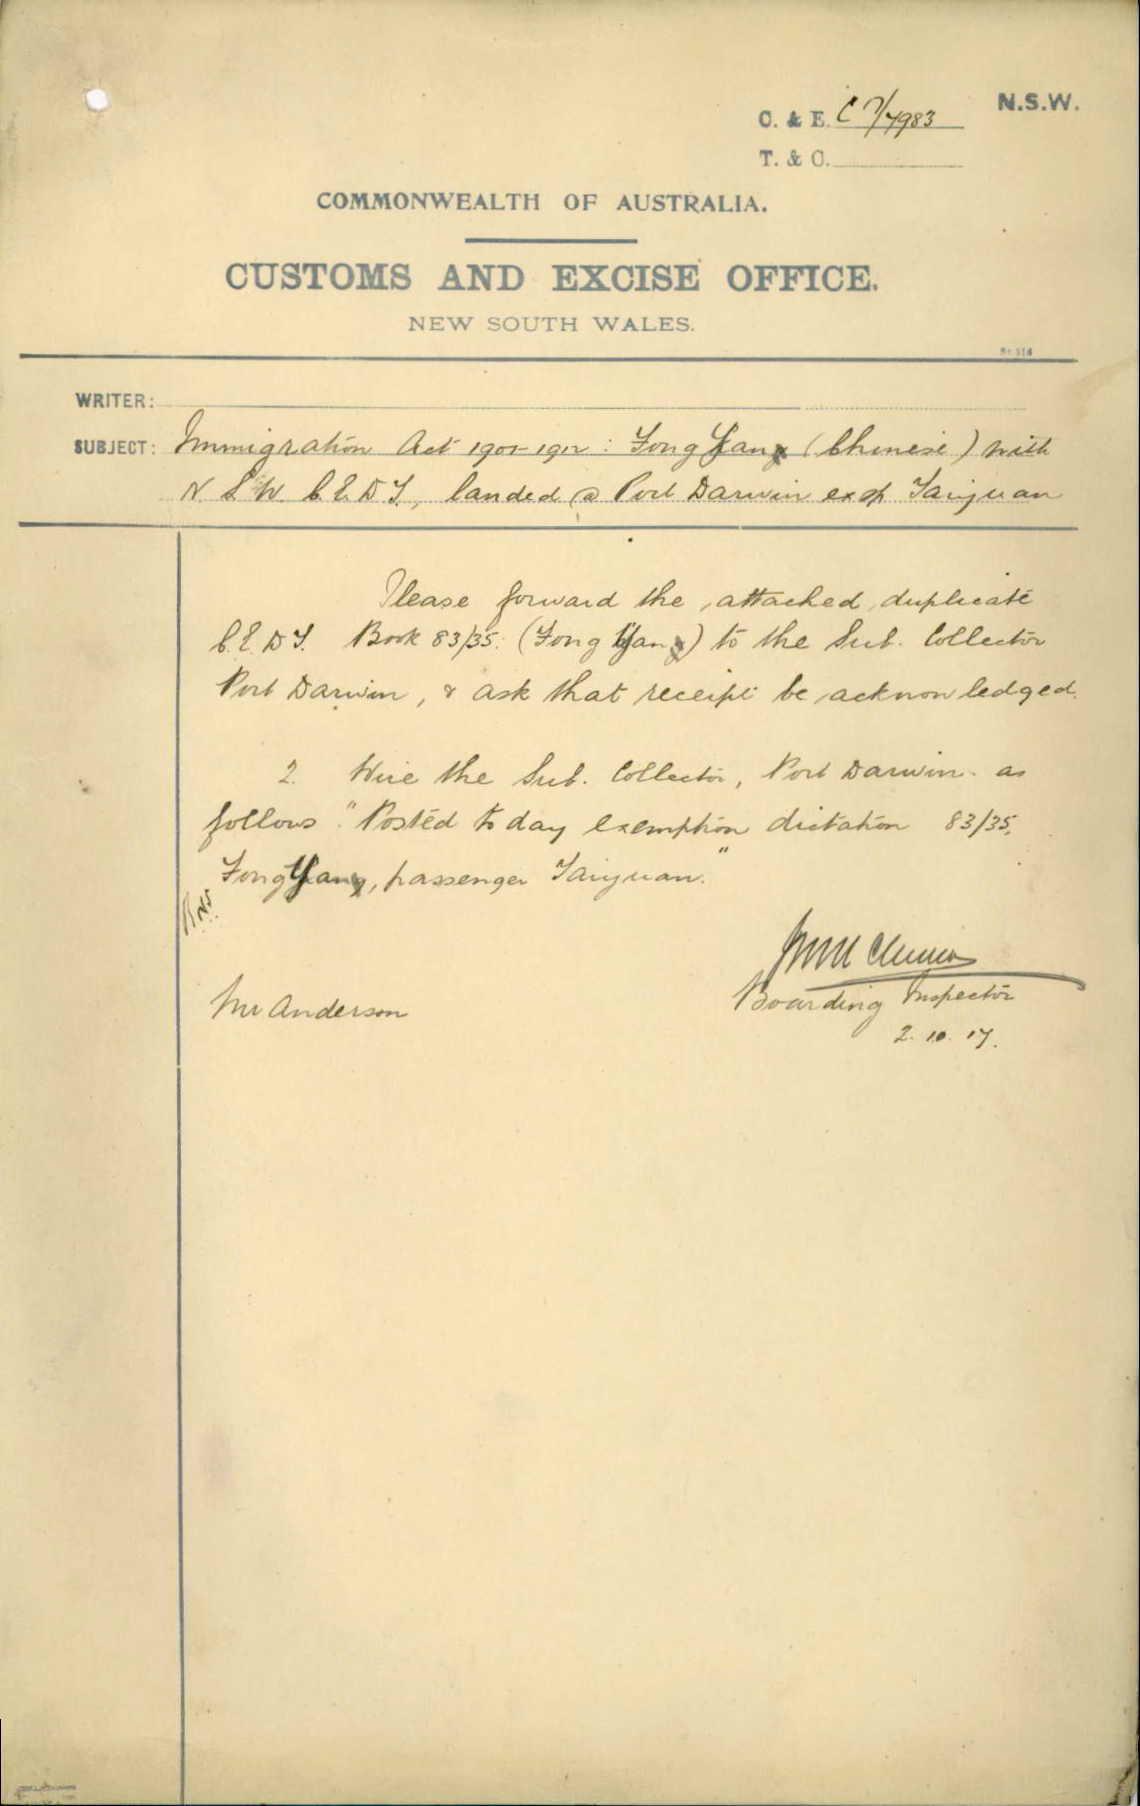 N.S.W.
C. & E. C 17/7983
T. & C.
COMMONWEALTH OF AUSTRALIA.
CUSTOMS AND EXCISE OFFICE.
NEW SOUTH WALES.
WRITER:
SUBJECT: Immigration Act 1901-1912 : Fong Yang (Chinese) with
N S W C.E.D.T., landed @ Port Darwin ex sp Taiyuan
Please forward the attached duplicate
C.E.D.T. Book 83/35. (Fong Yang) to the Sub. Collector
Port Darwin, & ask that receipt be acknowledged.
2. Wire the Sub. Collector, Port Darwin as
follows "Posted today exemption dictation 83/35,
Fong Yang, passenger Taiyuan."
Boarding Inspector
Mr Anderson
2.10.17.